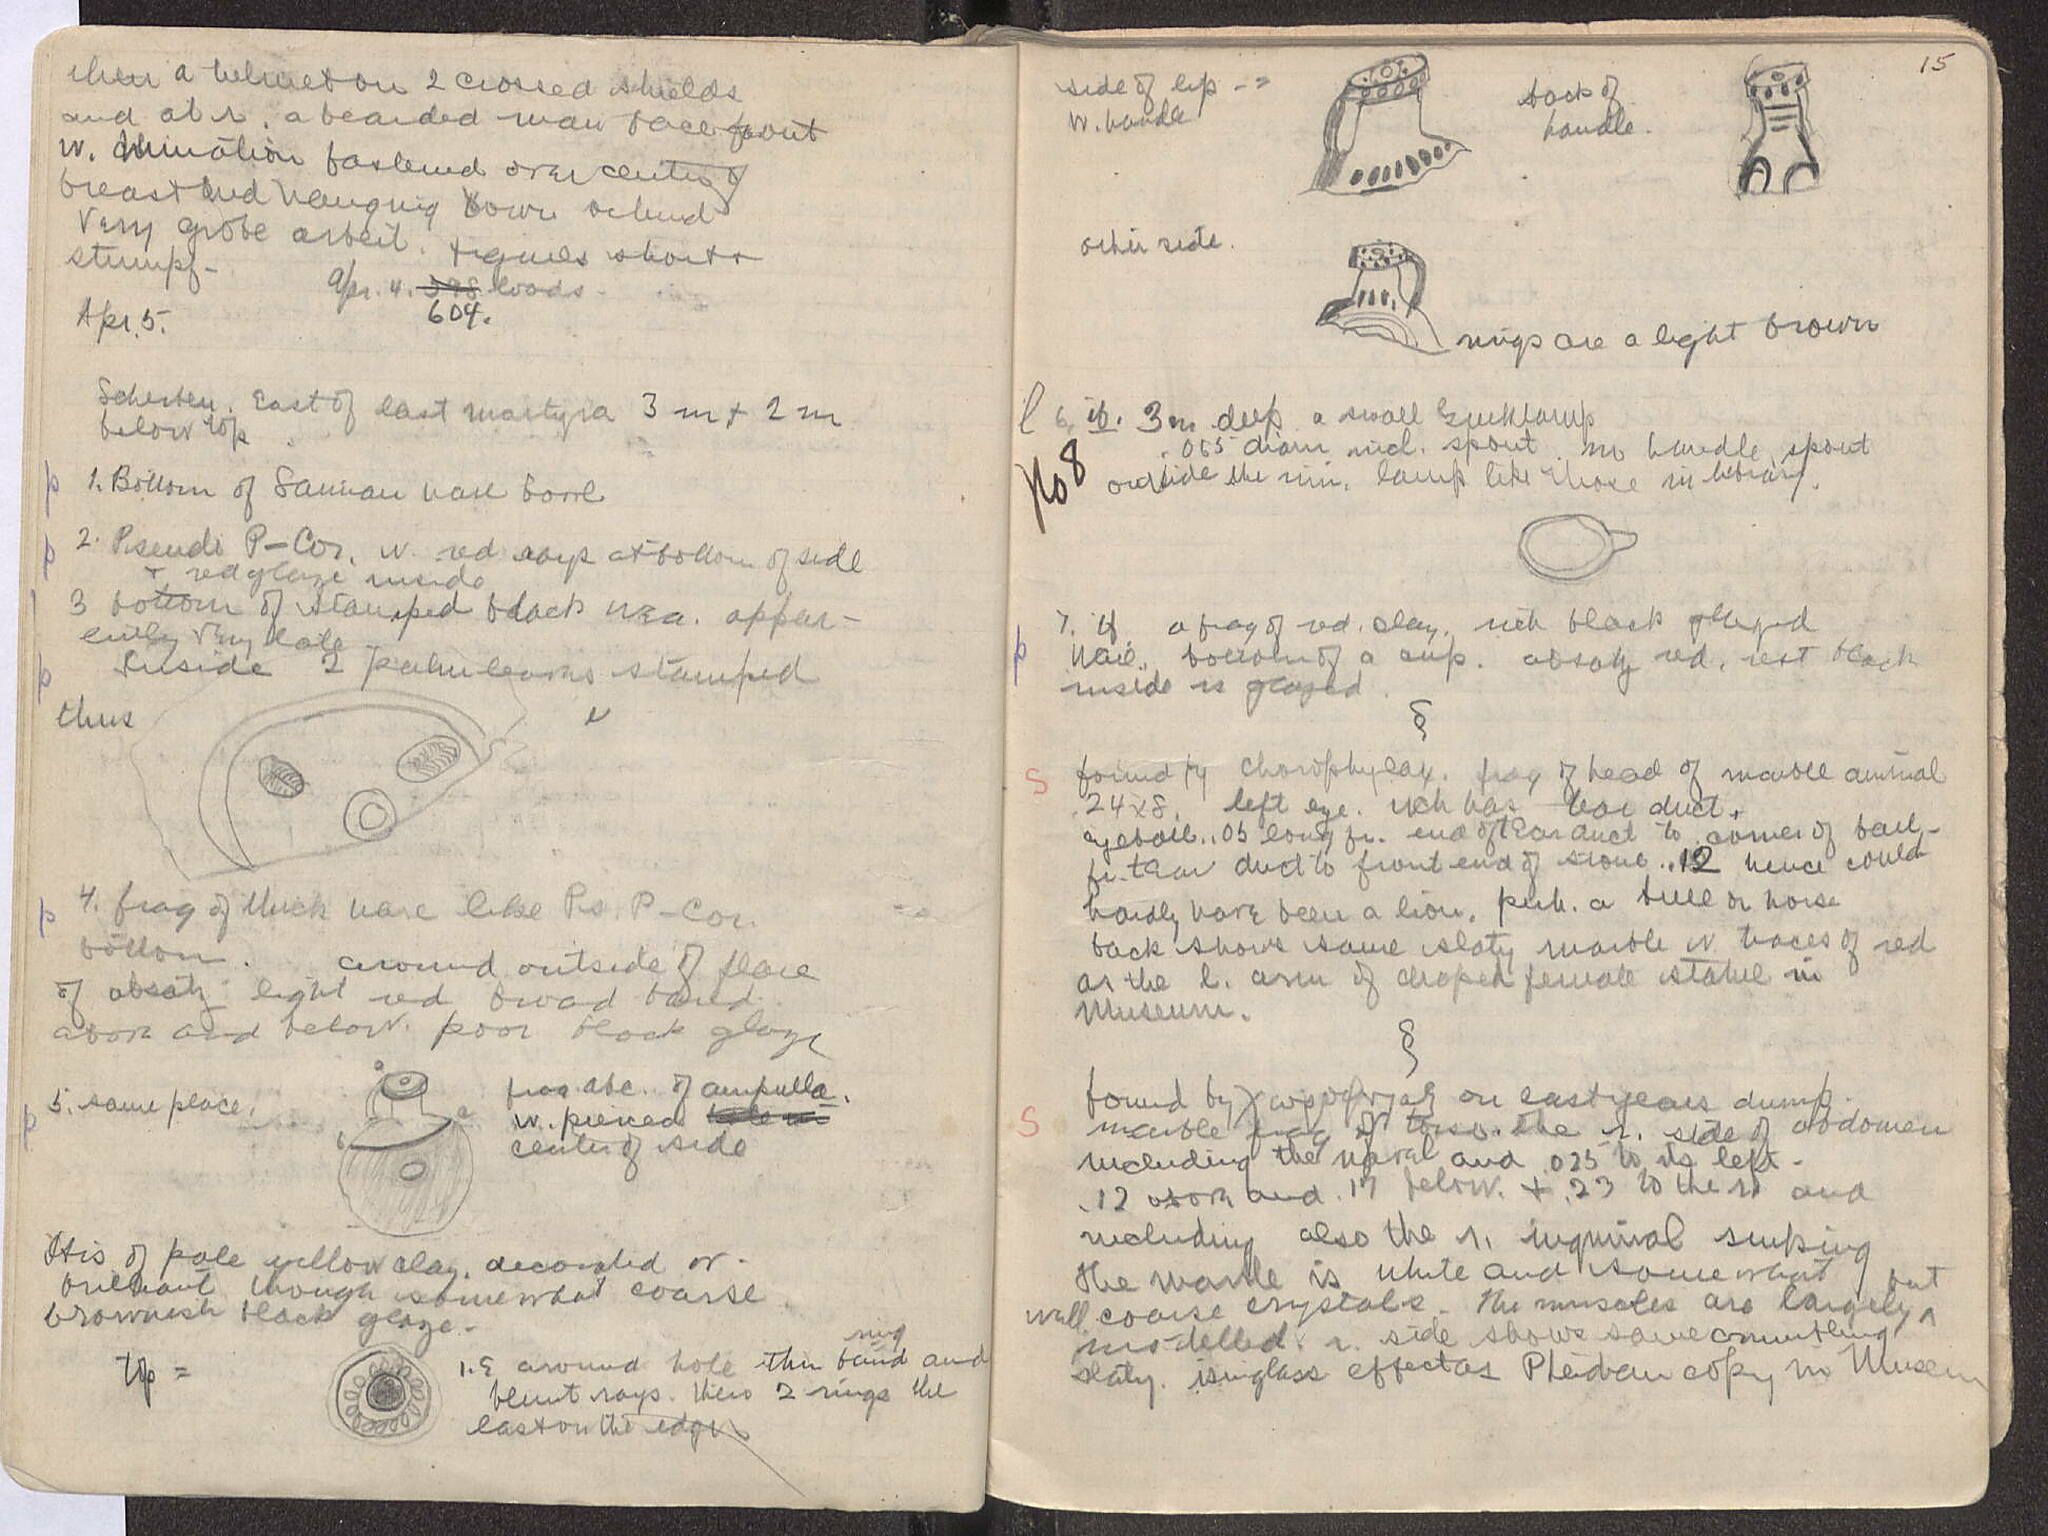 then a helmet on 2 crossed shields
and at r. a bearded man face front
w. fastened over center of
breast and hanging down behind
Very grobe arbeit. figures short +
stumpf-
Apr. 4. 598 loads-
604.
Apr. 5.
Scherben. East of last martyria 3 m + 2 m
below top
p 1. Bottom of Samian ware bowl
p 2. Pseudo P-Cor. w. red rays at bottom of side
+ red glaze inside
3 bottom of stamped black ware. appar-
ently very late
p Inside 2 palm leaves stamped
thus
p 4. frag of thick ware like Ps. P-Cor.
bottom. around outside of place
of absatz light red broad band
above and below. poor black glaze
p 5. same place.
frag abc. of ampulla.
w. pierced
center of side
It is of pale yellow clay. decorated w.
brilliant though somewhat coarse
brownish black glaze.-
top =
ring
1. E around hole thin band and
blunt rays. then 2 rings the
last on the edge
15
side of lip - =
w. handle
back of
handle.
other side.
rings are a light brown
l 6. ib. 3 m deep a small Greek lamp
No 8
.065 diam incl. spout. no handle, spout
outside the rim. lamp like those in library.
p 7. if. a frag of red. clay. with black glazed
ware, bottom of a cup. absatz red, rest black
inside is glazed.
§
S found by chorophylax. frag of head of marble animal
.24 x 8. left eye. wch has tear duct.
eyeball .05 long fr. end of tear duct to corner of ball-
fr. tear duct to front end of stone .12 hence could
hardly have been a lion, perh. a bull or horse
back shows same slaty marble w traces of red
as the l. arm of draped female statue in
Museum.
§
found by on east years dump.
S marble frag of torso. the r. side of abdomen
including the naval and .025 to its left-
.12 above and .17 below. + .23 to the r. and
including also the r. inguinal sinking
The marble is white and somewhat
coarse crystals. The muscles are largely but
well modelled. r. side shows same crumbling
slaty. isinglass effect as Pheidian copy in Museum